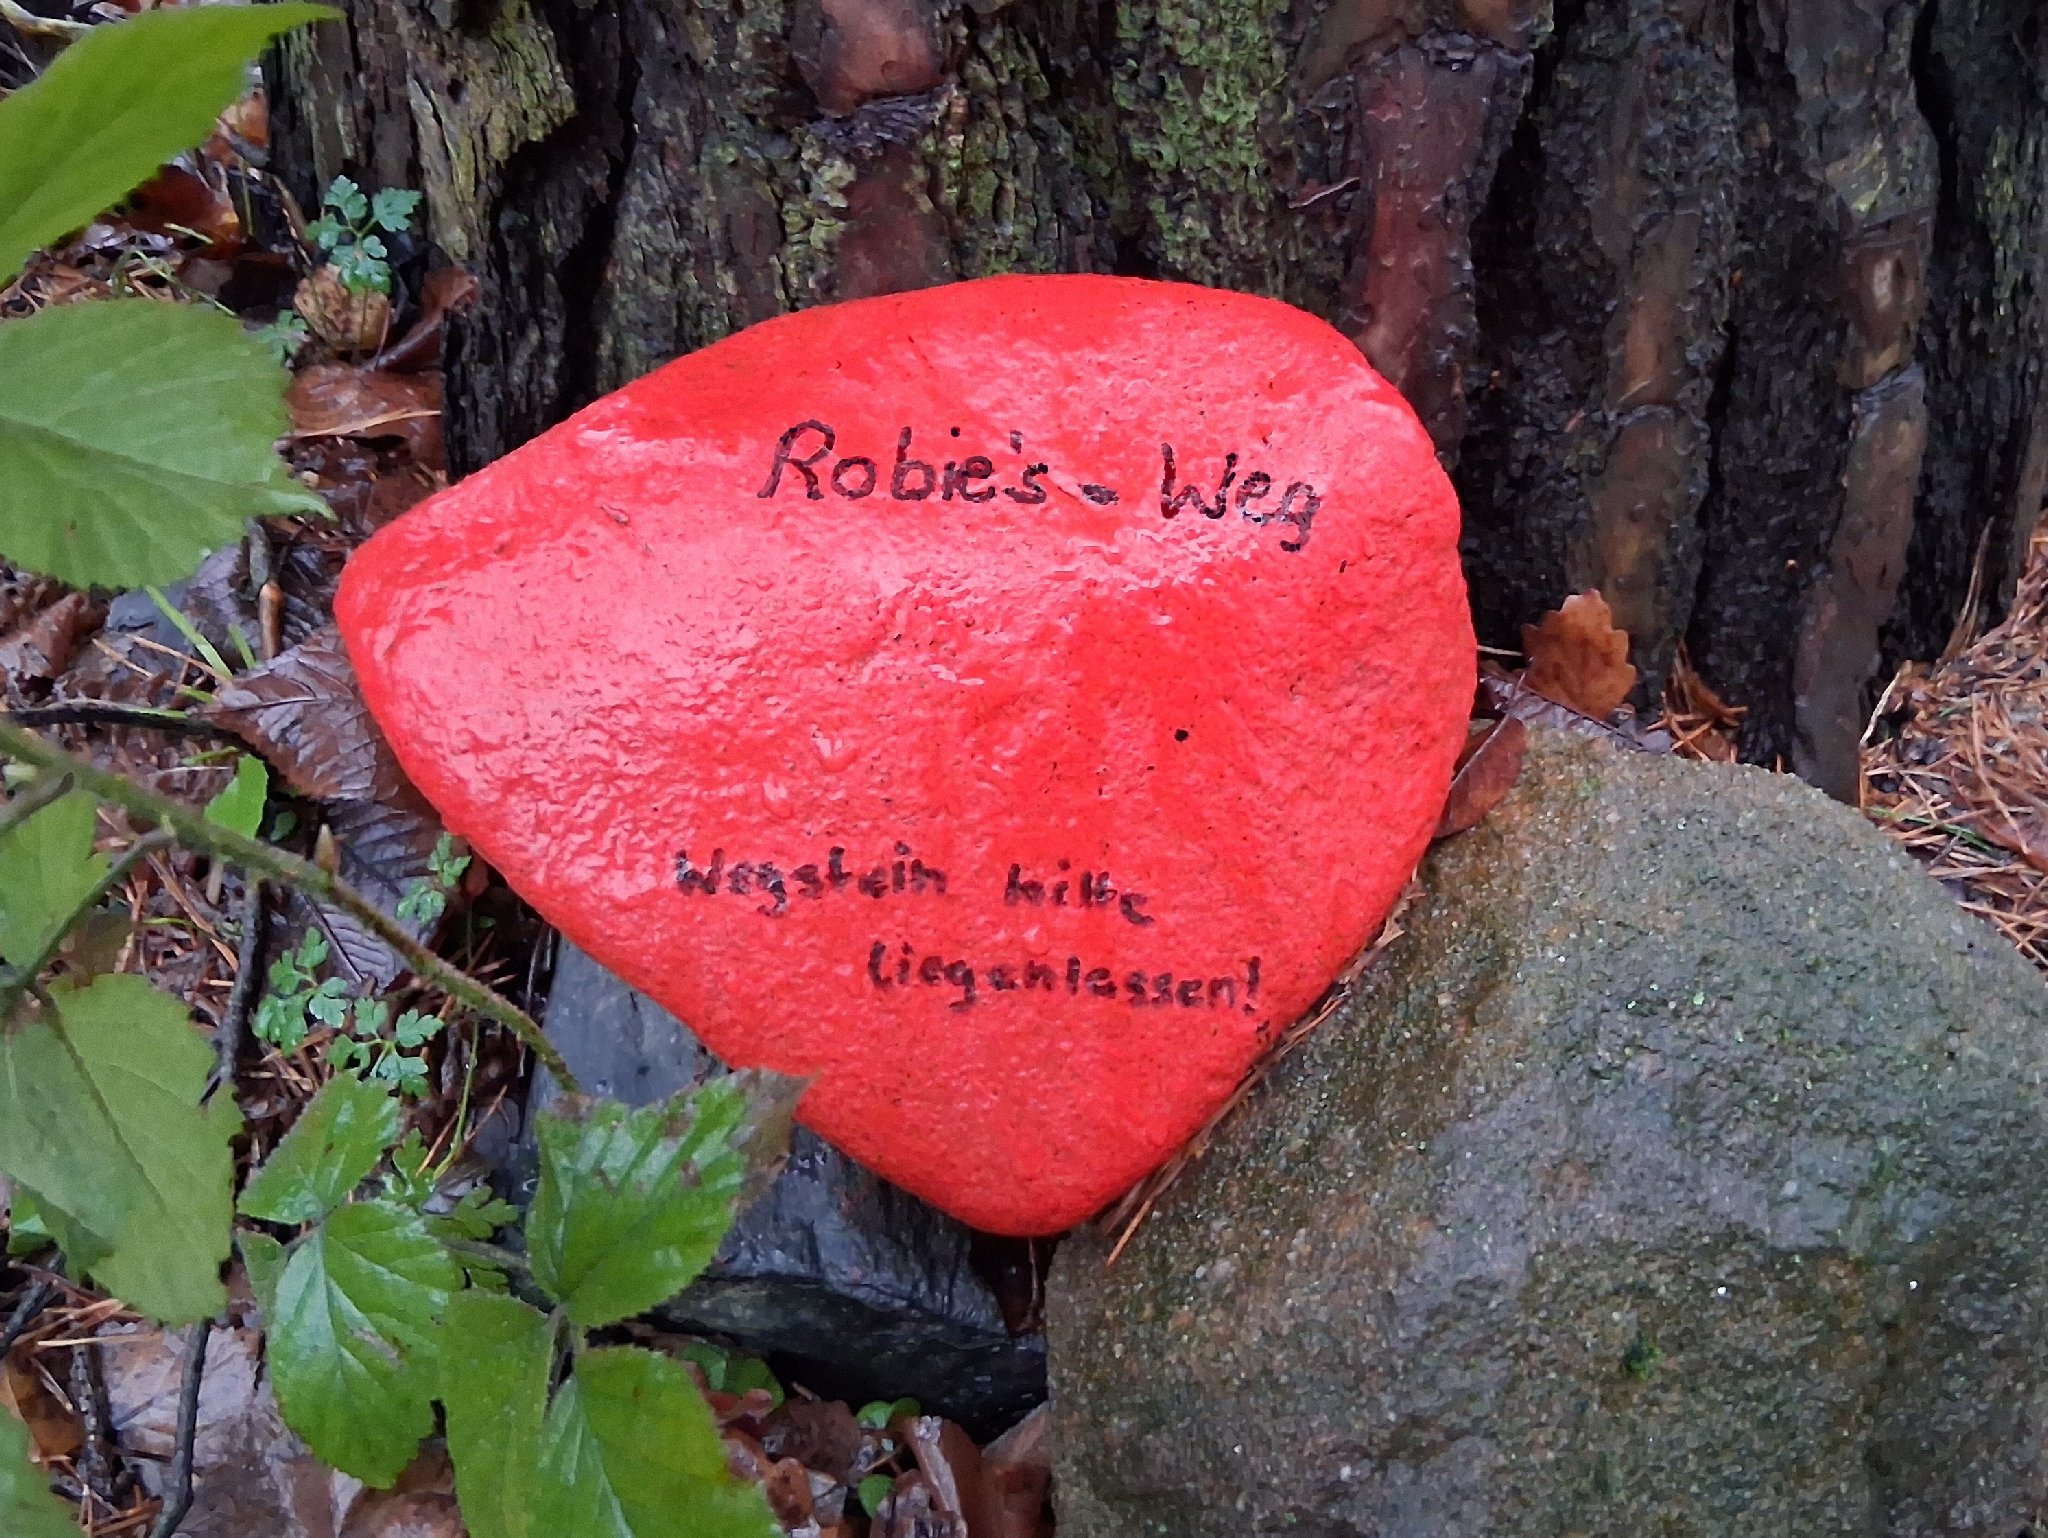 Robie's - Weg
Wegstein bitte
liegenlassen!